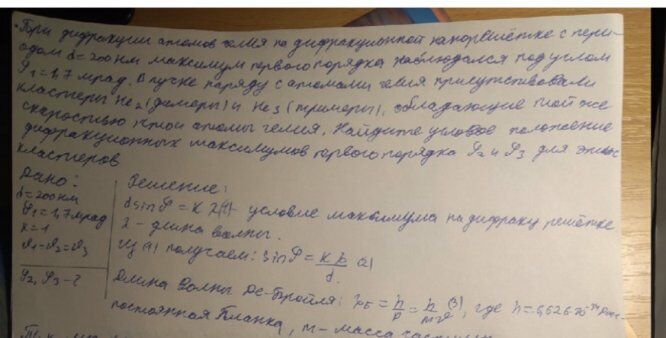 При дифракции атомов гелия на дифракционной нанорешётке с пери-
одом d=200нм максимум первого порядка наблюдался под углом
φ₁=1,7 мрад. В пучке наряду с атомами гелия присутствовали
кластеры He₂ (димеры) и He₃ (тримеры), обладающие той же
скоростью, что и атомы гелия. Найдите угловое положение
дифракционных максимумов первого порядка φ₂ и φ₃ для этих
кластеров
Дано:
d=200нм
φ₁=1,7мрад
k=1
υ₁=υ₂=υ₃
φ₂, φ₃-?
Решение:
dsinφ=kλ(1)- условие максимума на дифракц решётке
λ-длина волны.
Из (1) получаем: sinφ=kλ/d (2)
Длина волны де-Бройля: λ_Б=h/p=h/mυ (3), где h=6,626·10⁻³⁴
постоянная Планка, m-масса